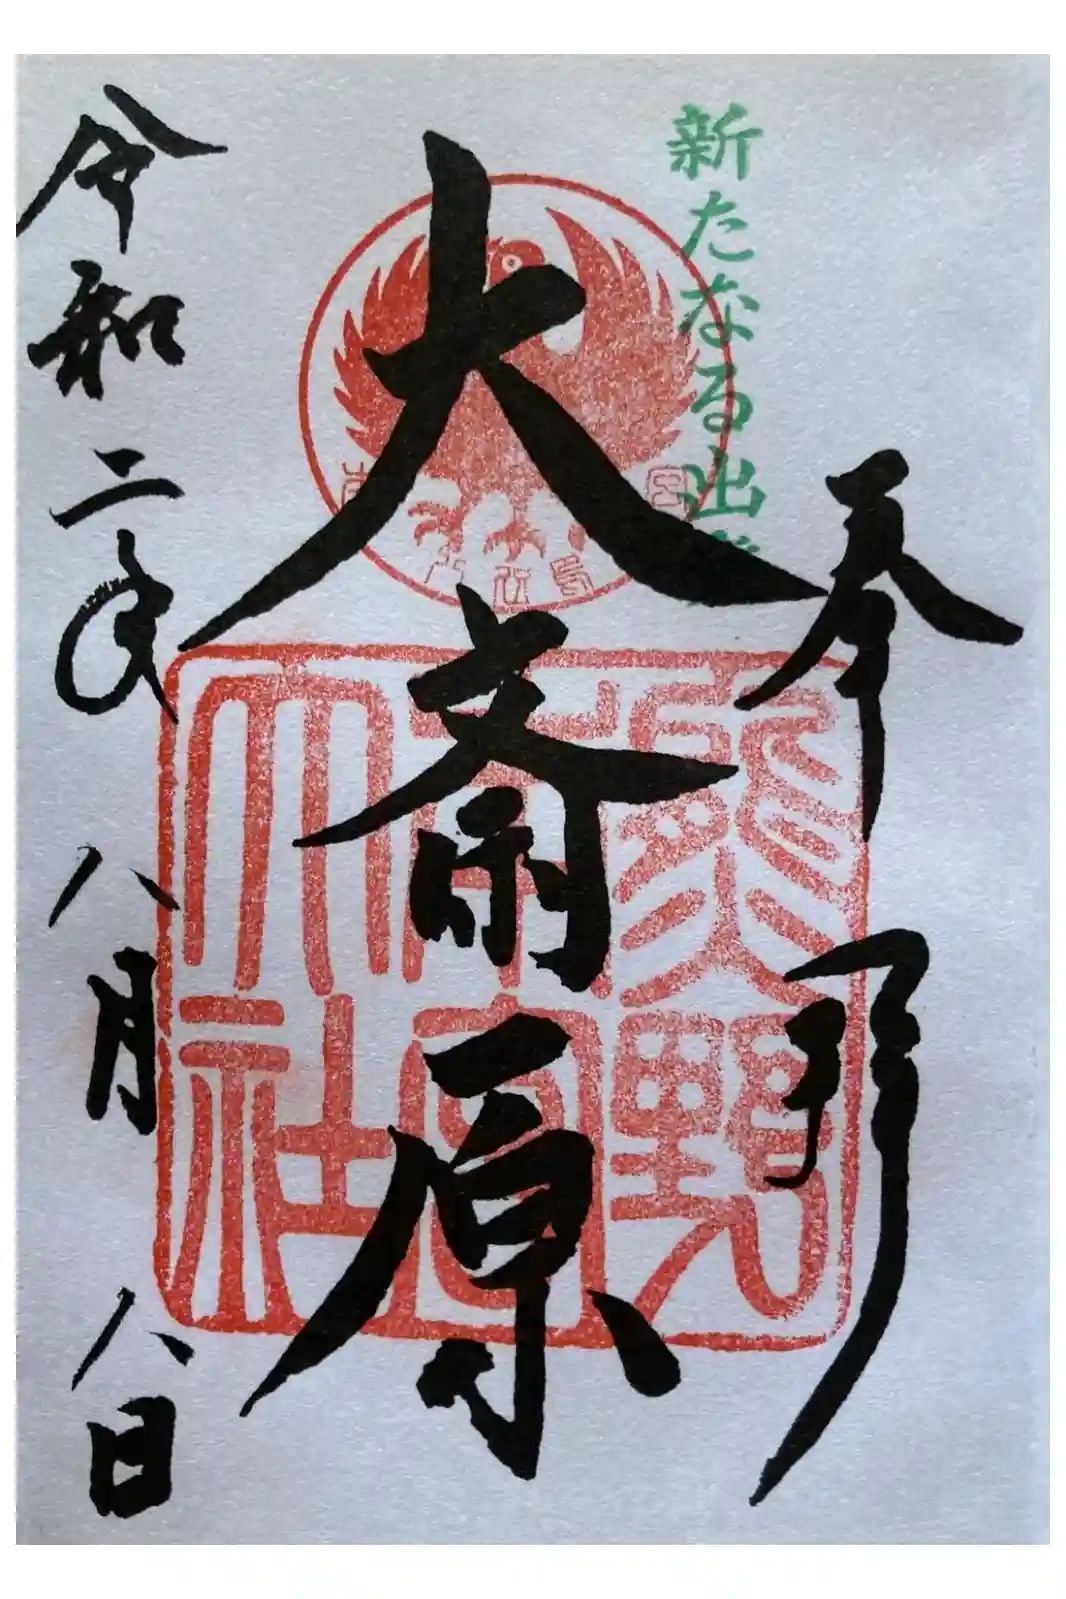 新たなる出発
奉拝
大斎原
熊野本宮大社
令和二年八月八日